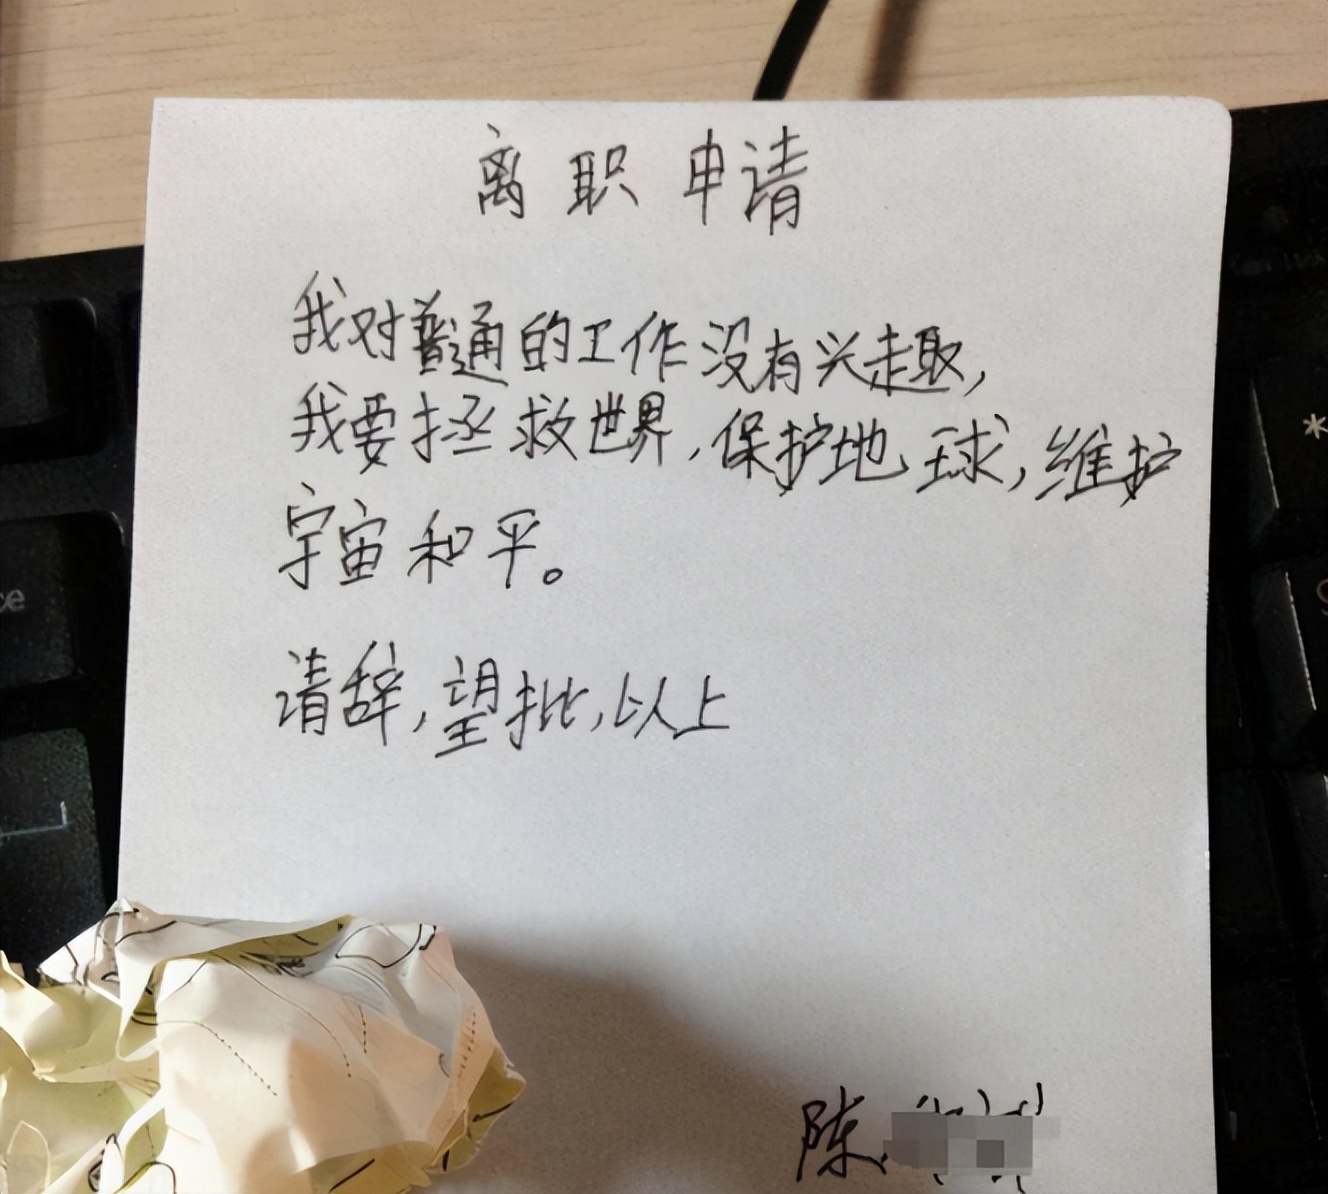 离职申请
我对普通的工作没有兴趣,
我要拯救世界,保护地球,维护
宇宙和平。
请辞,望批,以上
陈
*